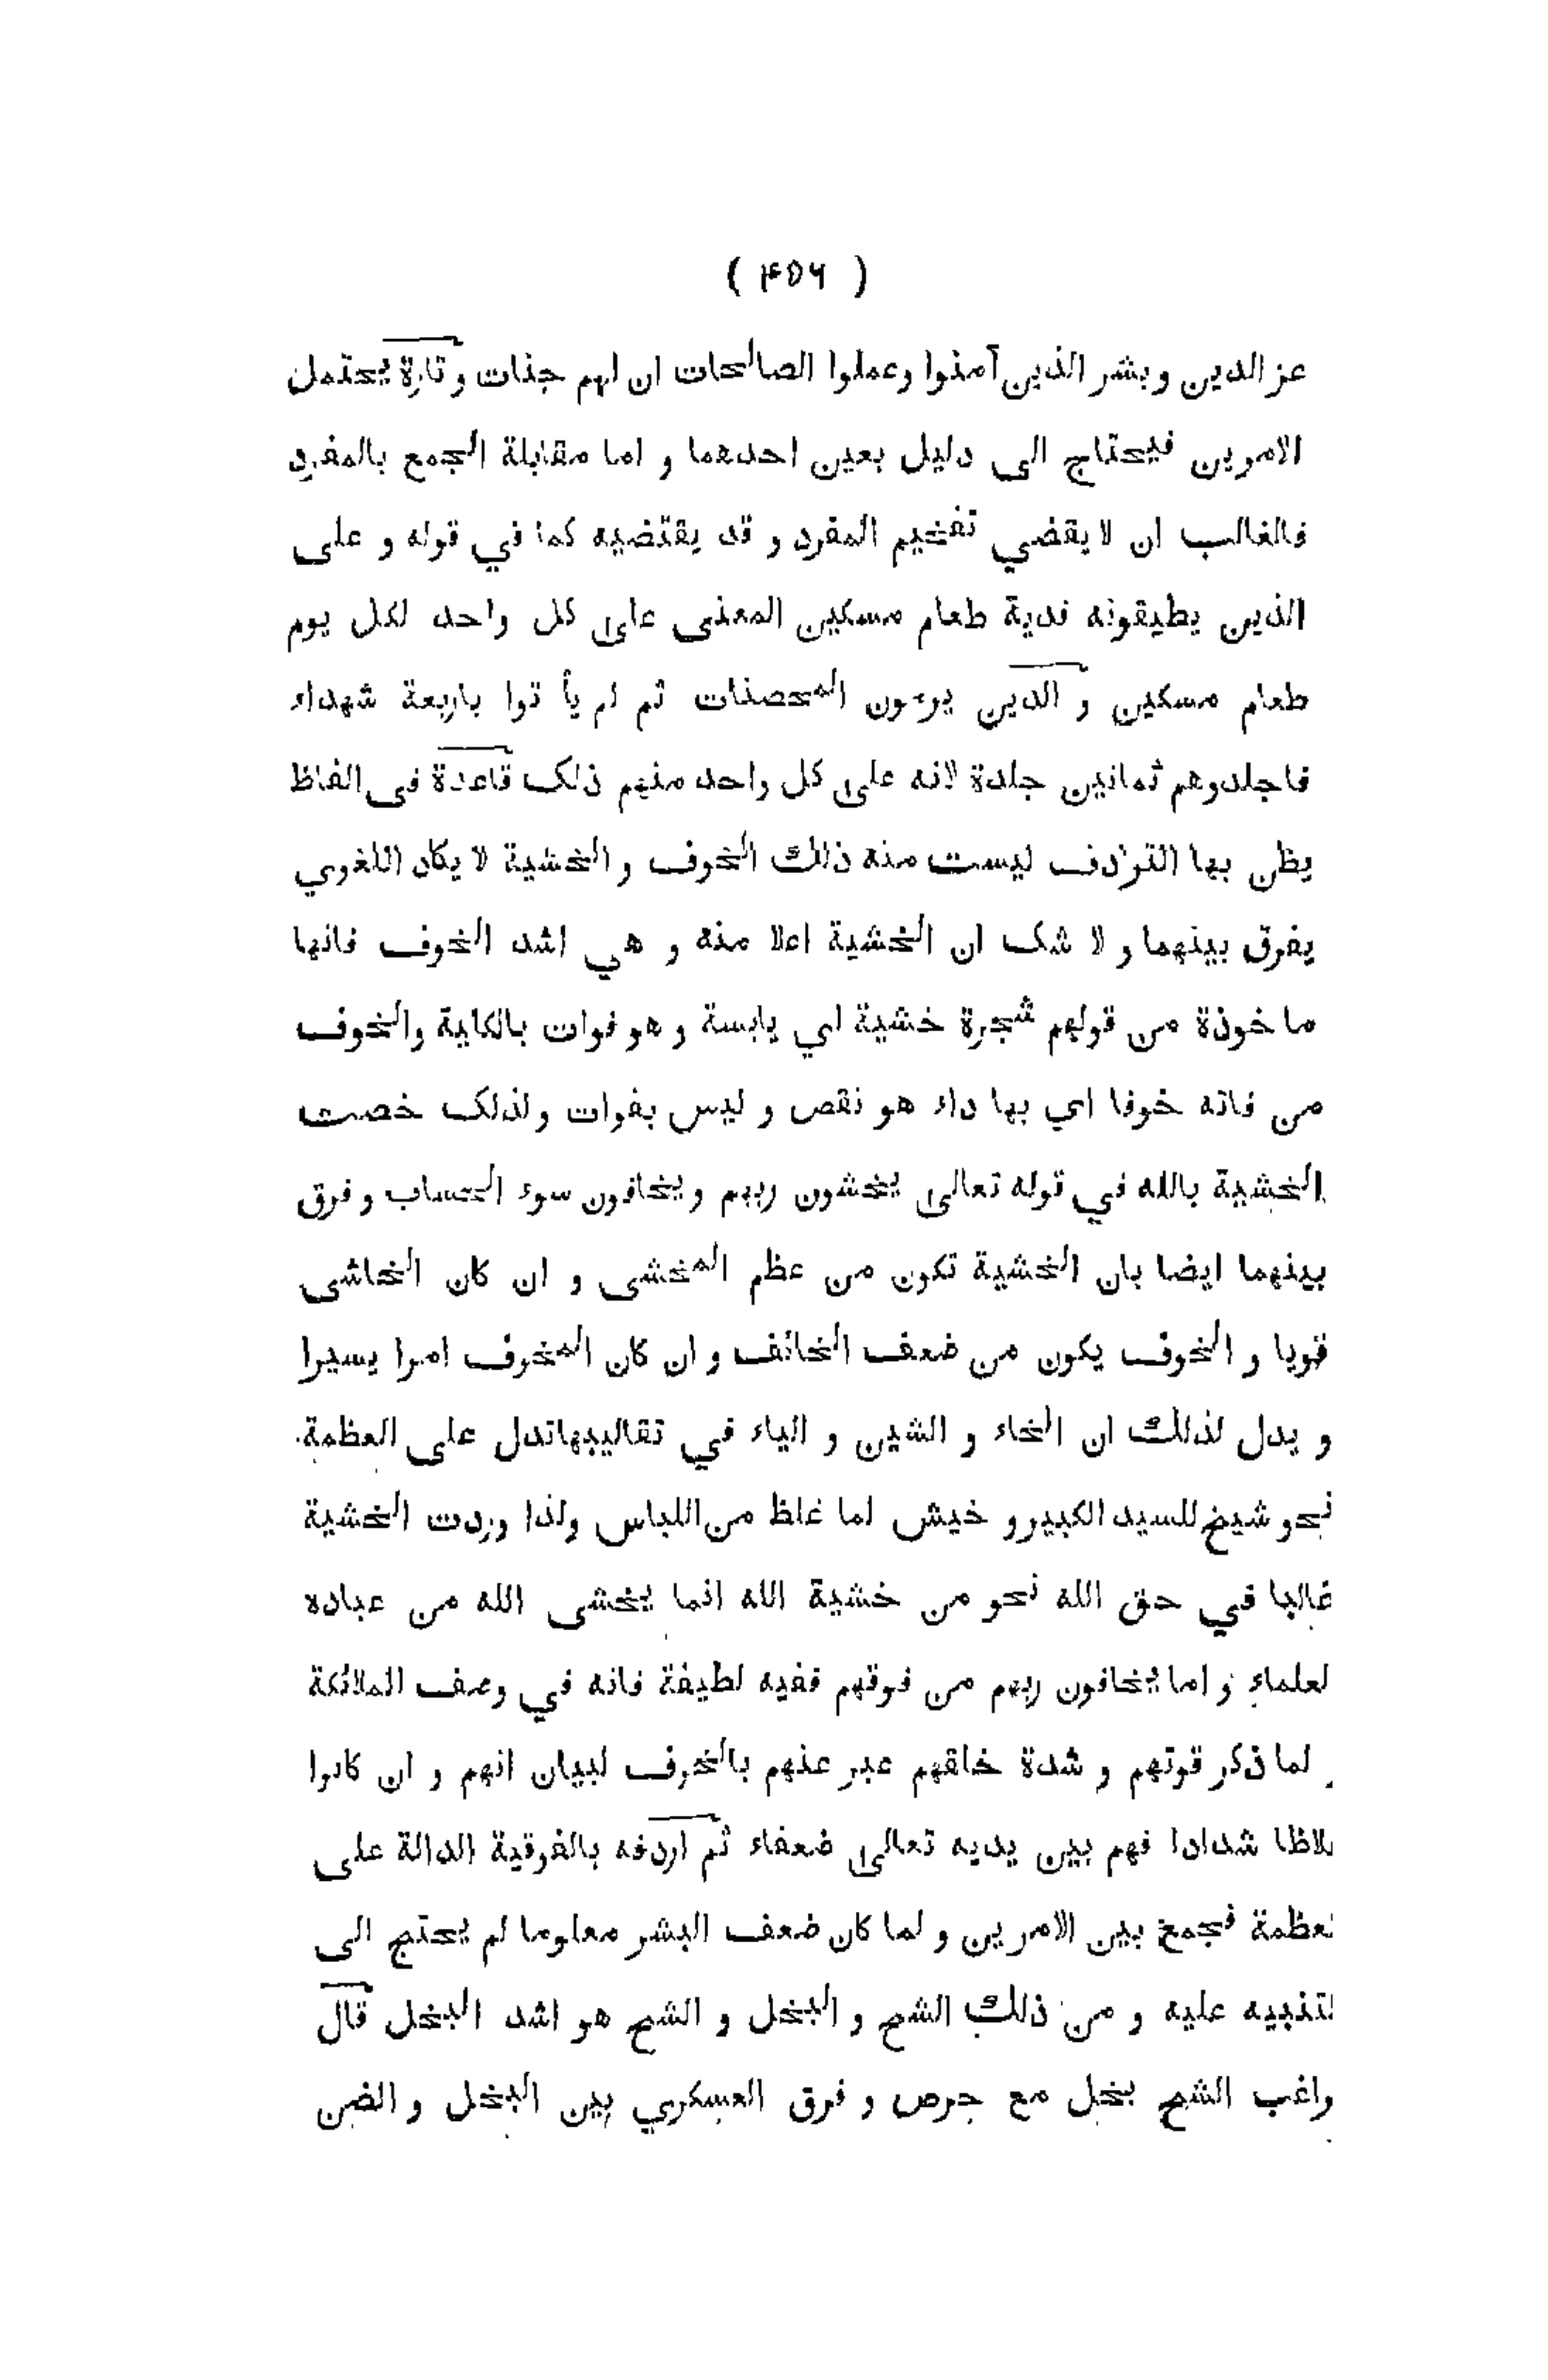 ( ۴۵۶ )
عز الدين وبشر الذين آمنوا وعملوا الصالحات ان لهم جنات وتارة يحتمل
الامرين فيحتاج الى دليل بعين احدهما و اما مقابلة الجمع بالمفرد
فالغالب ان لا يقضي تفخيم المفرد و قد يقتضيه كما في قوله و على
الذين يطيقونه فدية طعام مسكين المعنى على كل واحد لكل يوم
طعام مسكين و الذين يرمون المحصنات ثم لم يأ توا باربعة شهداء
فاجلدوهم ثمانين جلدة لانه على كل واحد منهم ذلك قاعدة فى الفاظ
يظن بها الترادف ليست منه ذلك الخوف و الخشية لا يكاد اللغوي
يفرق بينهما و لا شك ان الخشية اعلا منه و هي اشد الخوف فانها
ماخوذة من قولهم شجرة خشية اي يابسة و هو فوات بالكلية والخوف
من فاته خوفا اي بها داء هو نقص و ليس بفوات ولذلك خصت
الخشية بالله في قوله تعالى يخشون ربهم ويخافون سوء الحساب و فرق
بينهما ايضا بان الخشية تكون من عظم المخشى و ان كان الخاشى
قويا و الخوف يكون من ضعف الخائف و ان كان المخوف امرا يسيرا
و يدل لذلك ان الخاء و الشين و الياء في تقاليبهاتدل على العظمة
نحو شيخ للسيد الكبيرو خيش لما غلظ من اللباس ولذا وردت الخشية
غالبا في حق الله نحو من خشية الله انما يخشى الله من عباده
لعلماء و اما يخافون ربهم من فوقهم ففيه لطيفة فانه في وصف الملائكة
و لما ذكر قوتهم و شدة خلقهم عبر عنهم بالخوف لبيان انهم و ان كانوا
لاظا شدادا فهم بين يديه تعالى ضعفاء ثم اردفه بالفوقية الدالة على
لعظمة فجمع بين الامرين و لما كان ضعف البشر معلوما لم يحتج الى
لتنبيه عليه و من ذلك الشح و البخل و الشح هو اشد البخل قال
راغب الشح بخل مع حرص و فرق العسكري بين البخل و الضن